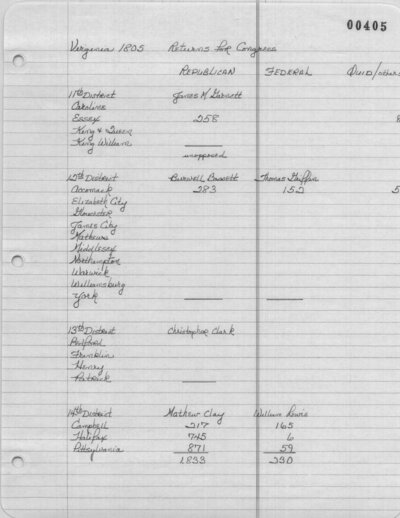 00405
Virginia 1805 Returns for Congress
REPUBLICAN FEDERAL Quid/others
11th District James M. Garnett
Caroline
Essex 258 8
King & Queen
King William
unopposed
12th District Burwell Bassett Thomas Griffin
Accomack 283 152 5
Elizabeth City
Gloucester
James City
Mathews
Middlesex
Northampton
Warwick
Williamsburg
York
13th District Christopher Clark
Bedford
Franklin
Henry
Patrick
14th District Mathew Clay William Lewis
Campbell 217 165
Halifax 745 6
Pittsylvania 871 59
1833 230